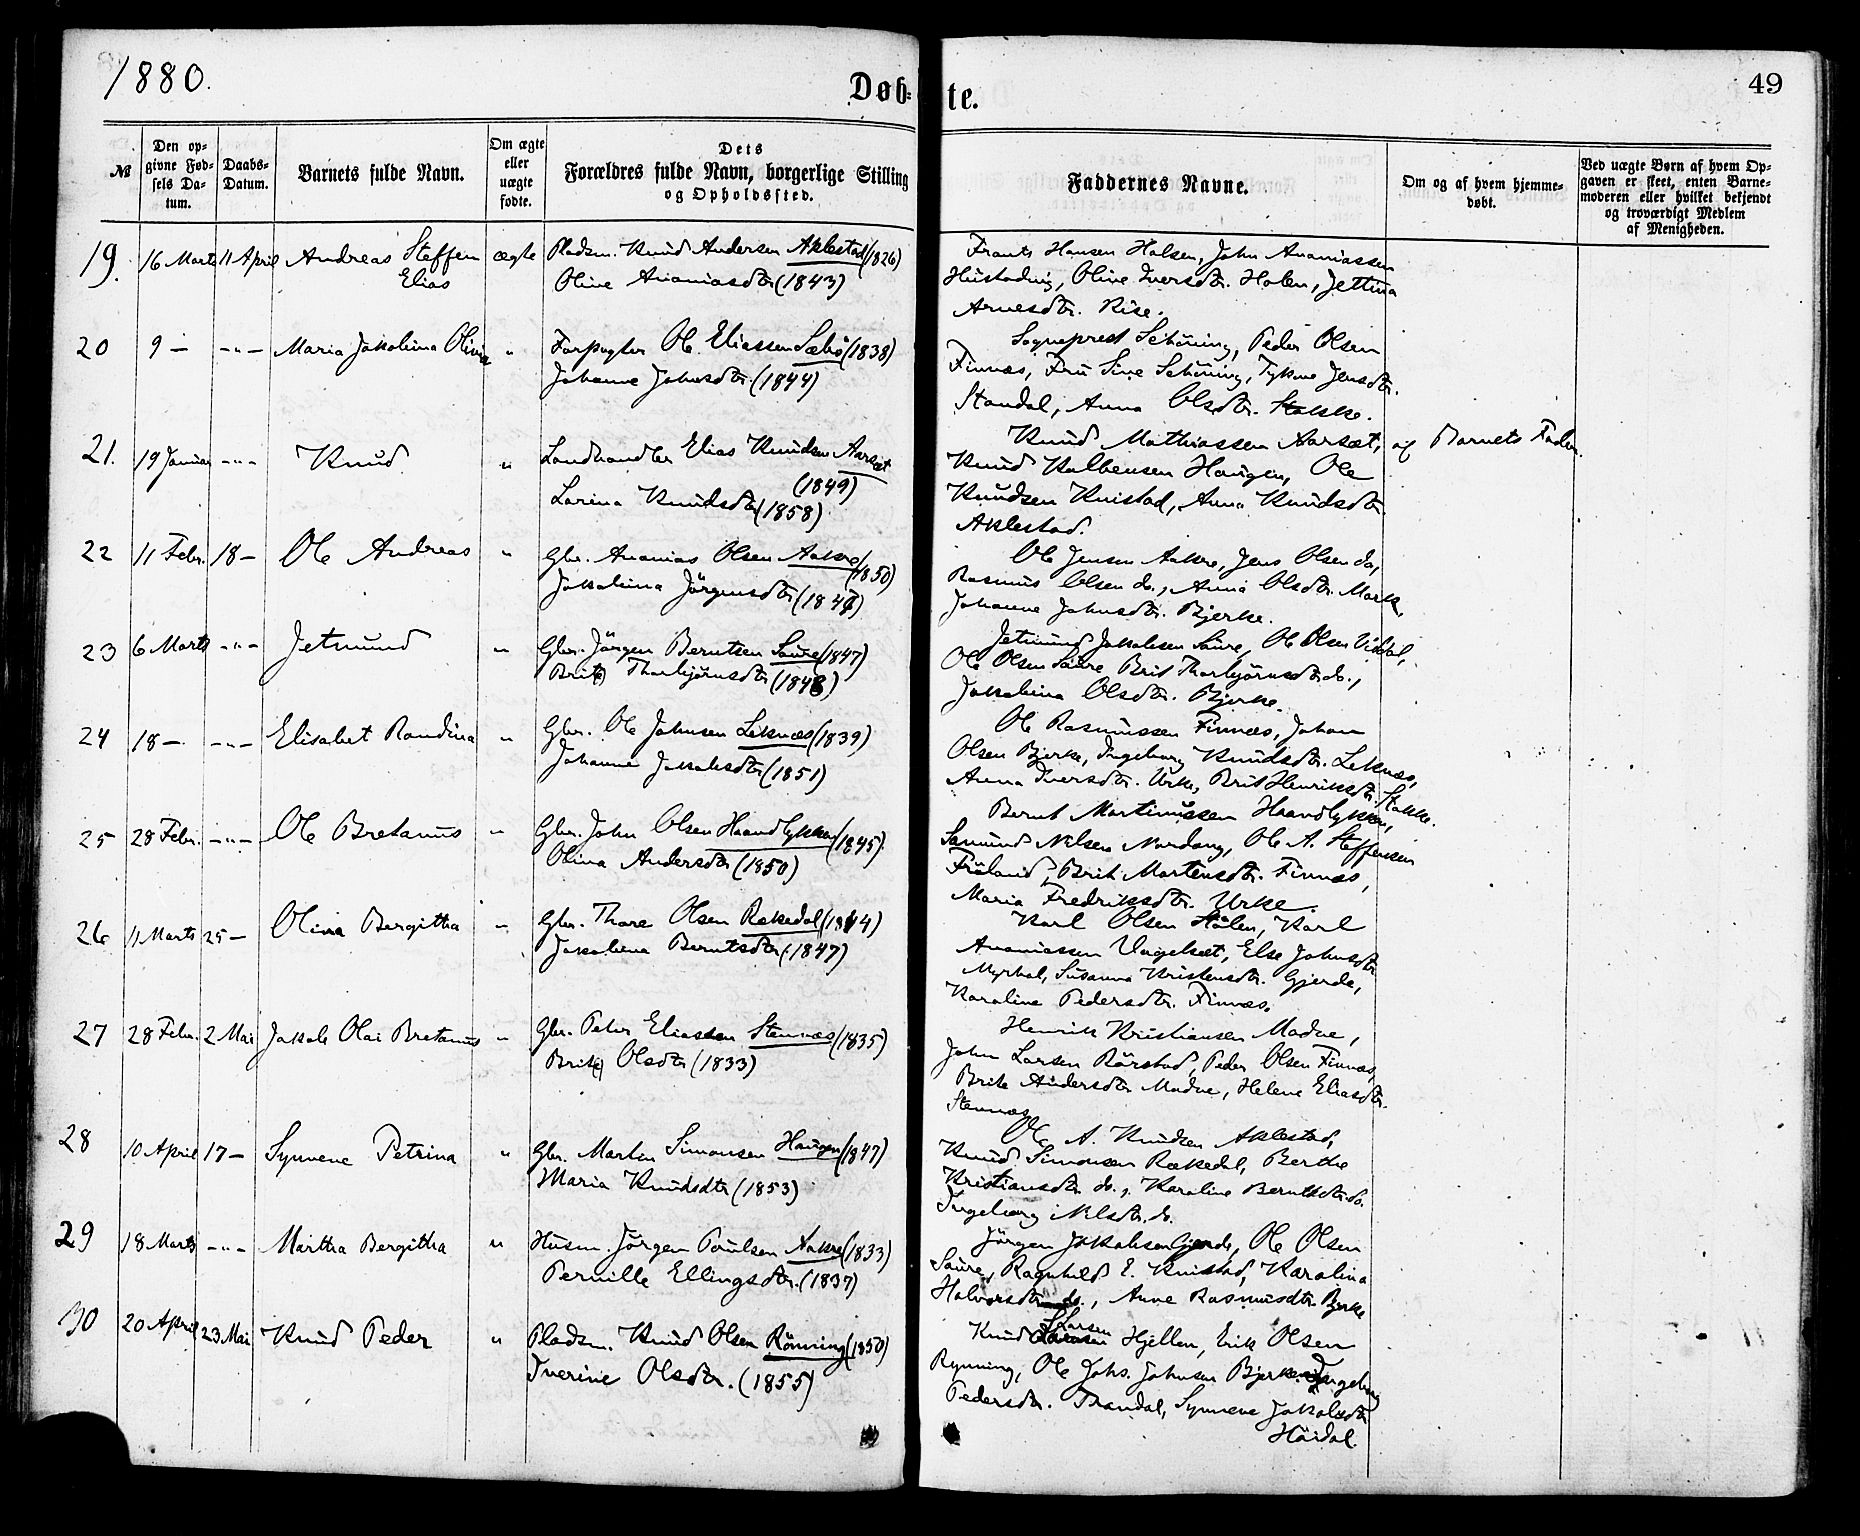 1880.
Døb-
te.
49
№
Den op-
givne Fød-
sels Da-
tum.
Daabs-
Datum.
Barnets fulde Navn.
Om ægte
eller
uægte
fødte.
Dets
Forældres fulde Navn, borgerlige Stilling
og Opholdssted.
Faddernes Navne.
Om og af hvem hjemme-
døbt.
Ved uægte Børn af hvem Op-
gaven er skeet, enten Barne-
moderen eller hvilket bekjendt
og troværdigt Medlem
af Menigheden.
19. 16 Marts 11 April Andreas Steffen
Elias
ægte
Pladsm. Knud Andersen Aklestad (1826)
Oline Ananiasdtr (1843)
Frants Hansen Holsen, John Ananiassen
Hustadnig, Oline Iversdtr. Holen, Jettina
Arnesdtr. Rise.
20 9 — —"— Maria Jakobina Olivia "
Forpagter Ole Eliassen Sæbø (1838)
Johanne Johnsdtr. (1844)
Sogneprest Schöning, Peder Olsen
Finnes, Fru Sine Schöning, Jensdtr.
Standal, Anna Olsdtr. Stokke.
21. 19 Januar —"— Knud "
Landhandler Elias Knudsen Aarset
(1849)
Larina Knudsdtr (1858)
Knud Mathiassen Aarset,
Knud Hangen, Ole
Knudsen Knistad, Anna Knudsdtr
Aklestad.
af Barnets Fader.
22 11 Febr. 18 — Ole Andreas "
Gbr. Ananias Olsen Aakre (1850)
Jakobina Jörgensdtr (1847)
Ole Jensen Aakre, Jens Olsen do,
Rasmus Olsen do., Anna Olsdtr. Mork,
Johanne Johnsdtr. Bjerke.
23 6 Marts —"— Jetmund "
Gbr. Jörgen Berntsen Saure (1847)
Brit(e) Thorbjörnsdtr (1848)
Jetmund Jakobsen Saure, Ole Olsen Viddal,
Ole Olsen Saure Brit Thorbjörnsdtr do.,
Jakobina Olsdtr. Bjerke.
24 18 — —"— Elisabet Randina "
Gbr. Ole Johnsen Leknæs (1839)
Johanne Jakobsdtr (1851)
Ole Rasmussen Finnæs, Johan
Olsen Bjerke, Ingeborg Knudsdtr. Leknæs,
Anna Iversdtr. Urke, Brit Henriksdtr. Stokke.
25 28 Febr. —"— Ole Bretanus "
Gbr. John Olsen Haandlykken (1845)
Olina Andersdtr (1850)
Bernt Martinussen Haandlykken,
Samund Nilsen Nordang, Ole A. Steffensen
Fröland, Brit Martensdtr. Finnæs,
Maria Fredriksdtr. Urke.
26 11 Marts 25 — Olina Bergitha "
Gbr. Thore Olsen Rækedal (1844)
Jakobina Berntsdtr (1847)
Karl Olsen Hålen, Karl
Ananiassen Ungelsæt, Else Johnsdtr
Myrhol, Susanna Kristensdtr. Gjerde,
Karoline Pedersdtr. Finnæs.
27 28 Febr. 2 Mai Jakob Olai Bretanus "
Gbr. Peter Eliassen Stennæs (1835)
Brit(e) Olsdtr (1833)
Henrik Kristiansen Madve,
John Larsen Rörstad, Peder Olsen Finnæs,
Brite Andersdtr Madve, Helene Eliasdtr.
Stennæs
28 10 April 17 — Synneve Petrina "
Gbr. Martin Simonsen Haugen (1847)
Maria Knudsdtr (1853)
Ole A. Knudsen Aklestad,
Knud Simonsen Rækedal, Berthe
Kristiansdtr do., Karoline Berntsdtr do.
Ingeborg Nilsdtr. do.
29 18 Marts —"— Martha Bergitha "
Husm. Jörgen Poulsen Aakre (1833)
Pernille Ellingsdtr. (1837)
Jörgen Jakobsen Gjerde, Ole Olsen
Saure, Ragnhild E. Knistad, Karolina
Halvorsdtr do., Anne Rasmusdtr. Bjerke
30 20 April 23 Mai Knud Peder "
Pladsm. Knud Olsen Rönning (1850)
Iverine Olsdtr. (1855)
Larsen
Knud Hjellen, Erik Olsen
Rynning, Ole Johs. Johnsen Bjerke, Ingeborg
Pedersdtr. Trandal, Synneve Jakobsdtr
Håidal.